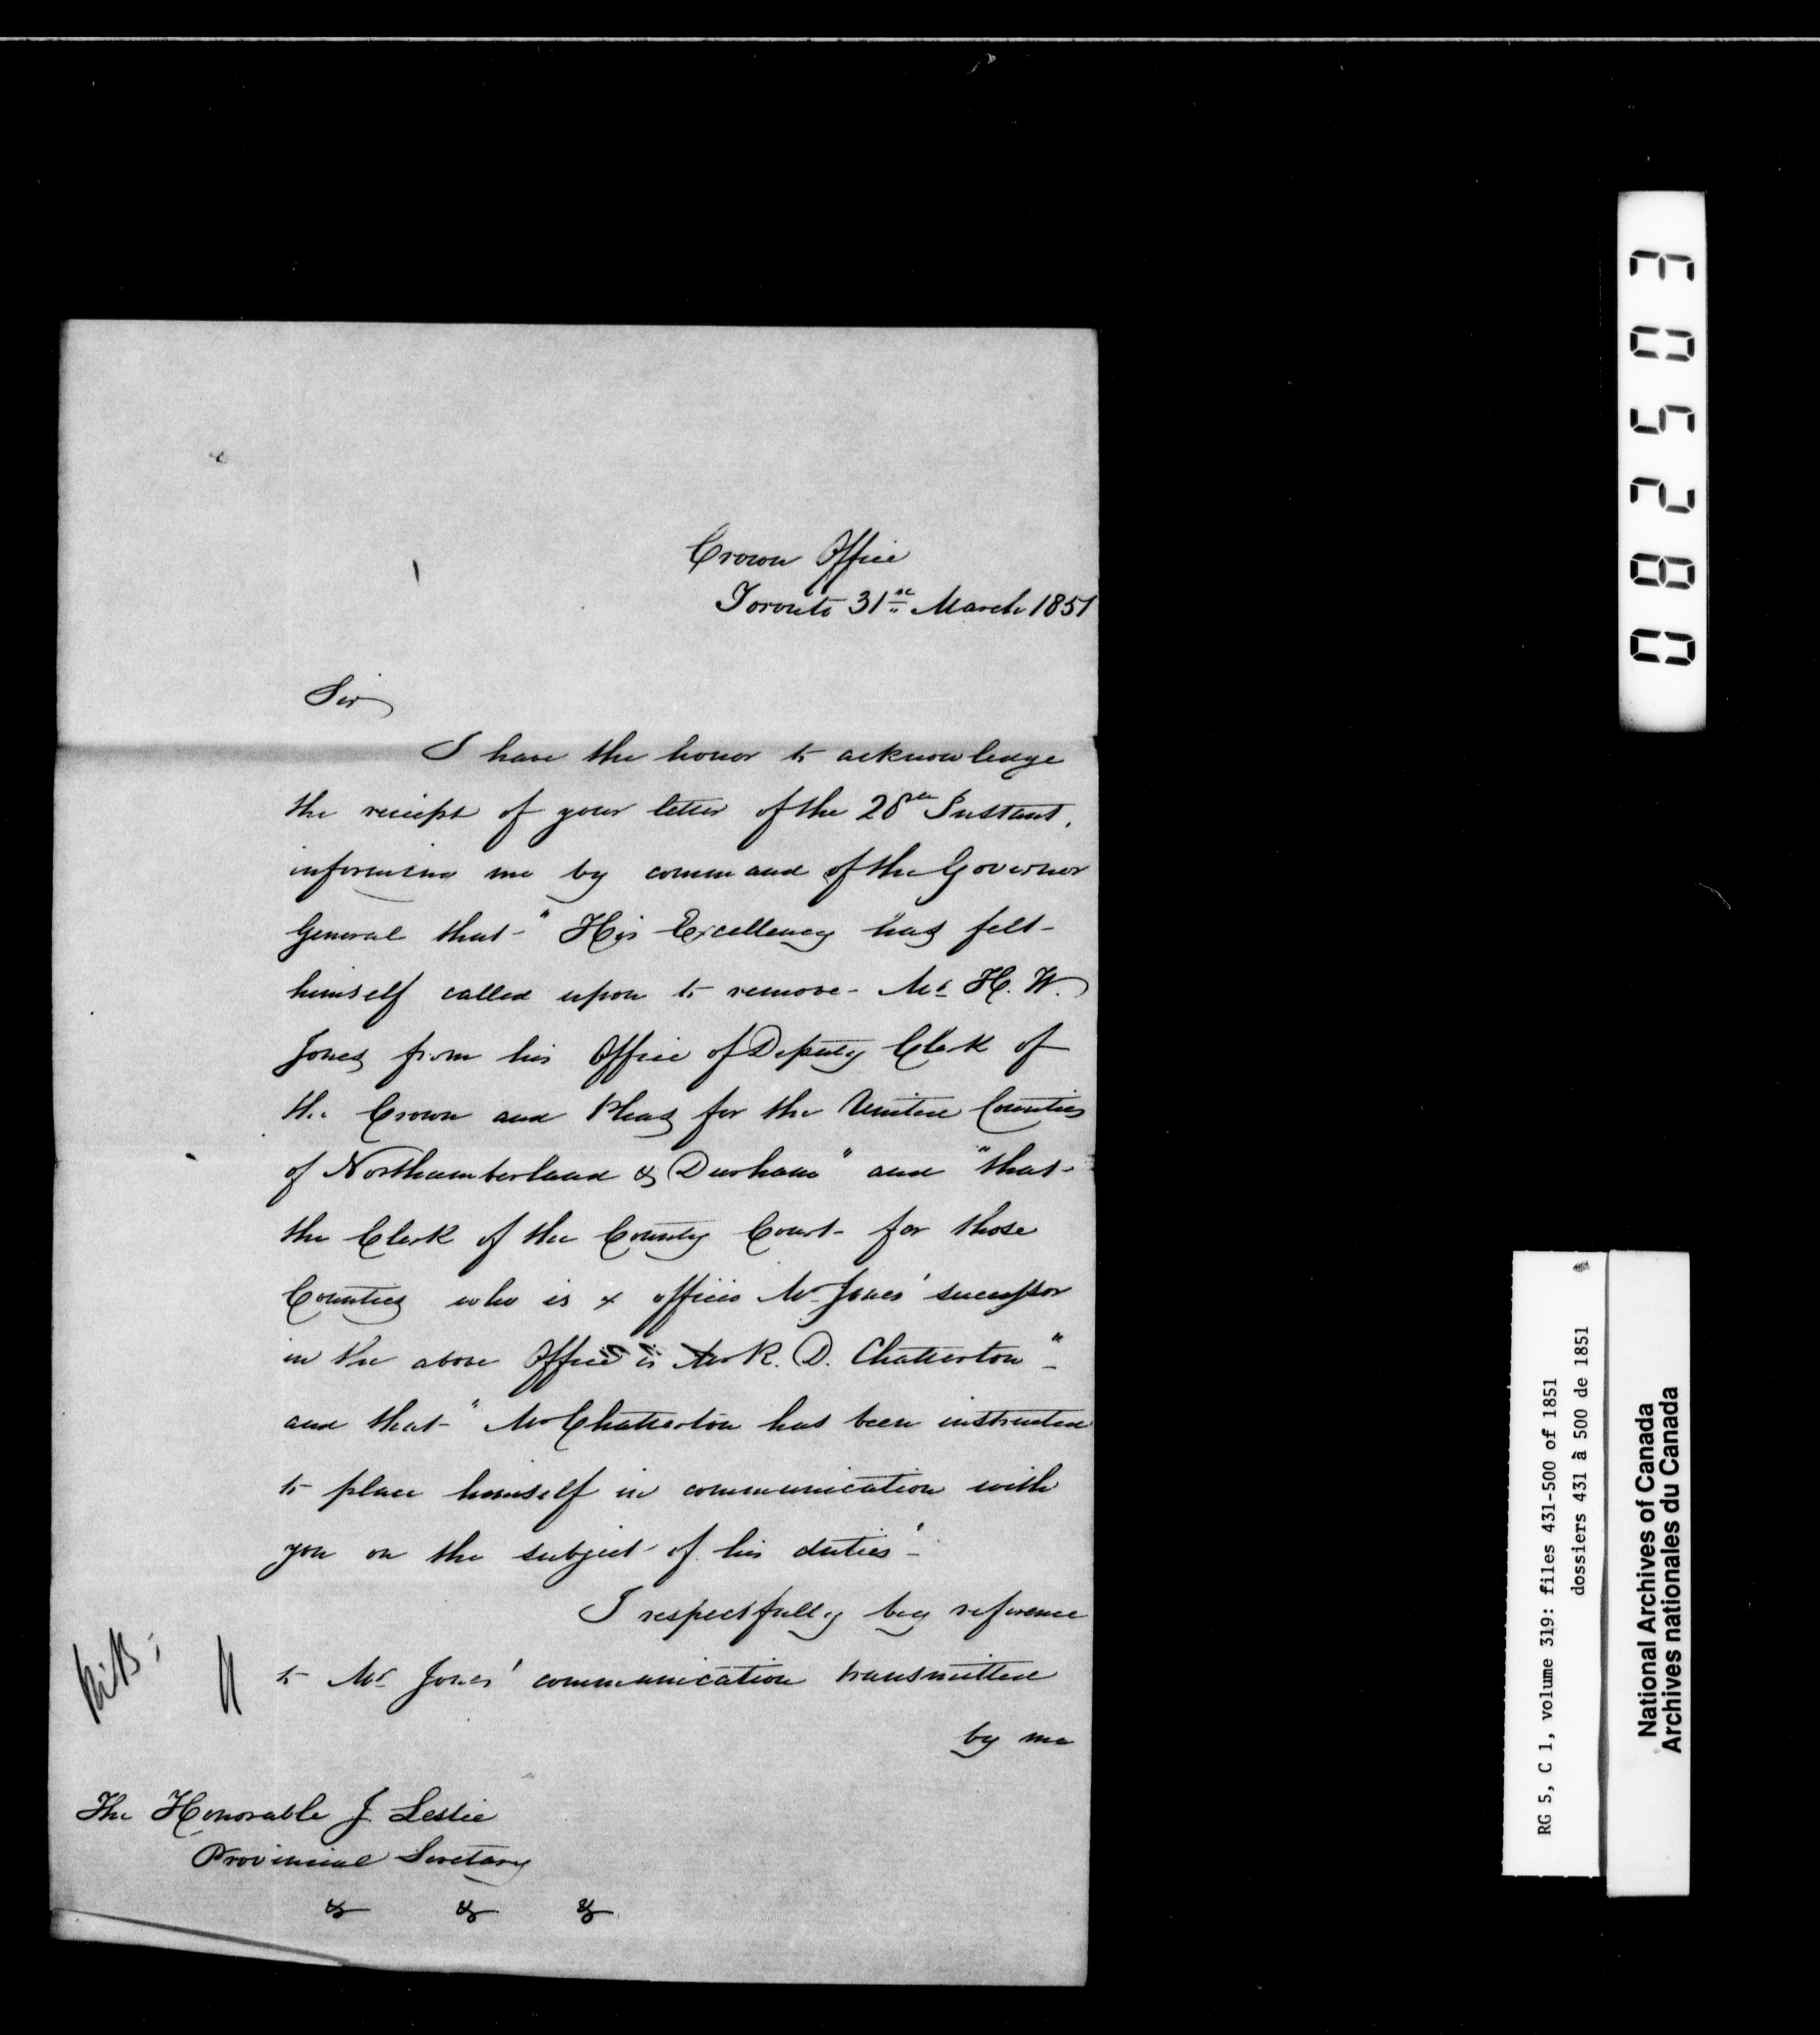 Crown Office
Toronto 31st March 1851
Sir
I have the honor to acknowledge
the receipt of your letter of the 28th Instant,
informing me by command of the Governor
General that "His Excellency has felt
himself called upon to remove Mr H. W.
Jones from his Office of Deputy Clerk of
the Crown and Pleas for the United Counties
of Northumberland & Durham" and "that
the Clerk of the County Court for those
Counties who is ex officio Mr Jones' successor
in the above Office is Mr R. D. Chatterton" -
and that "Mr Chatterton has been instructed
to place himself in communication with
you on the subject of his duties" -
I respectfully beg reference
to Mr Jones' communication transmitted
by me
The Honorable J Leslie
Provincial Secretary
& & &
082503
RG 5, C 1, volume 319: files 431-500 of 1851
dossiers 431 à 500 de 1851
National Archives of Canada
Archives nationales du Canada